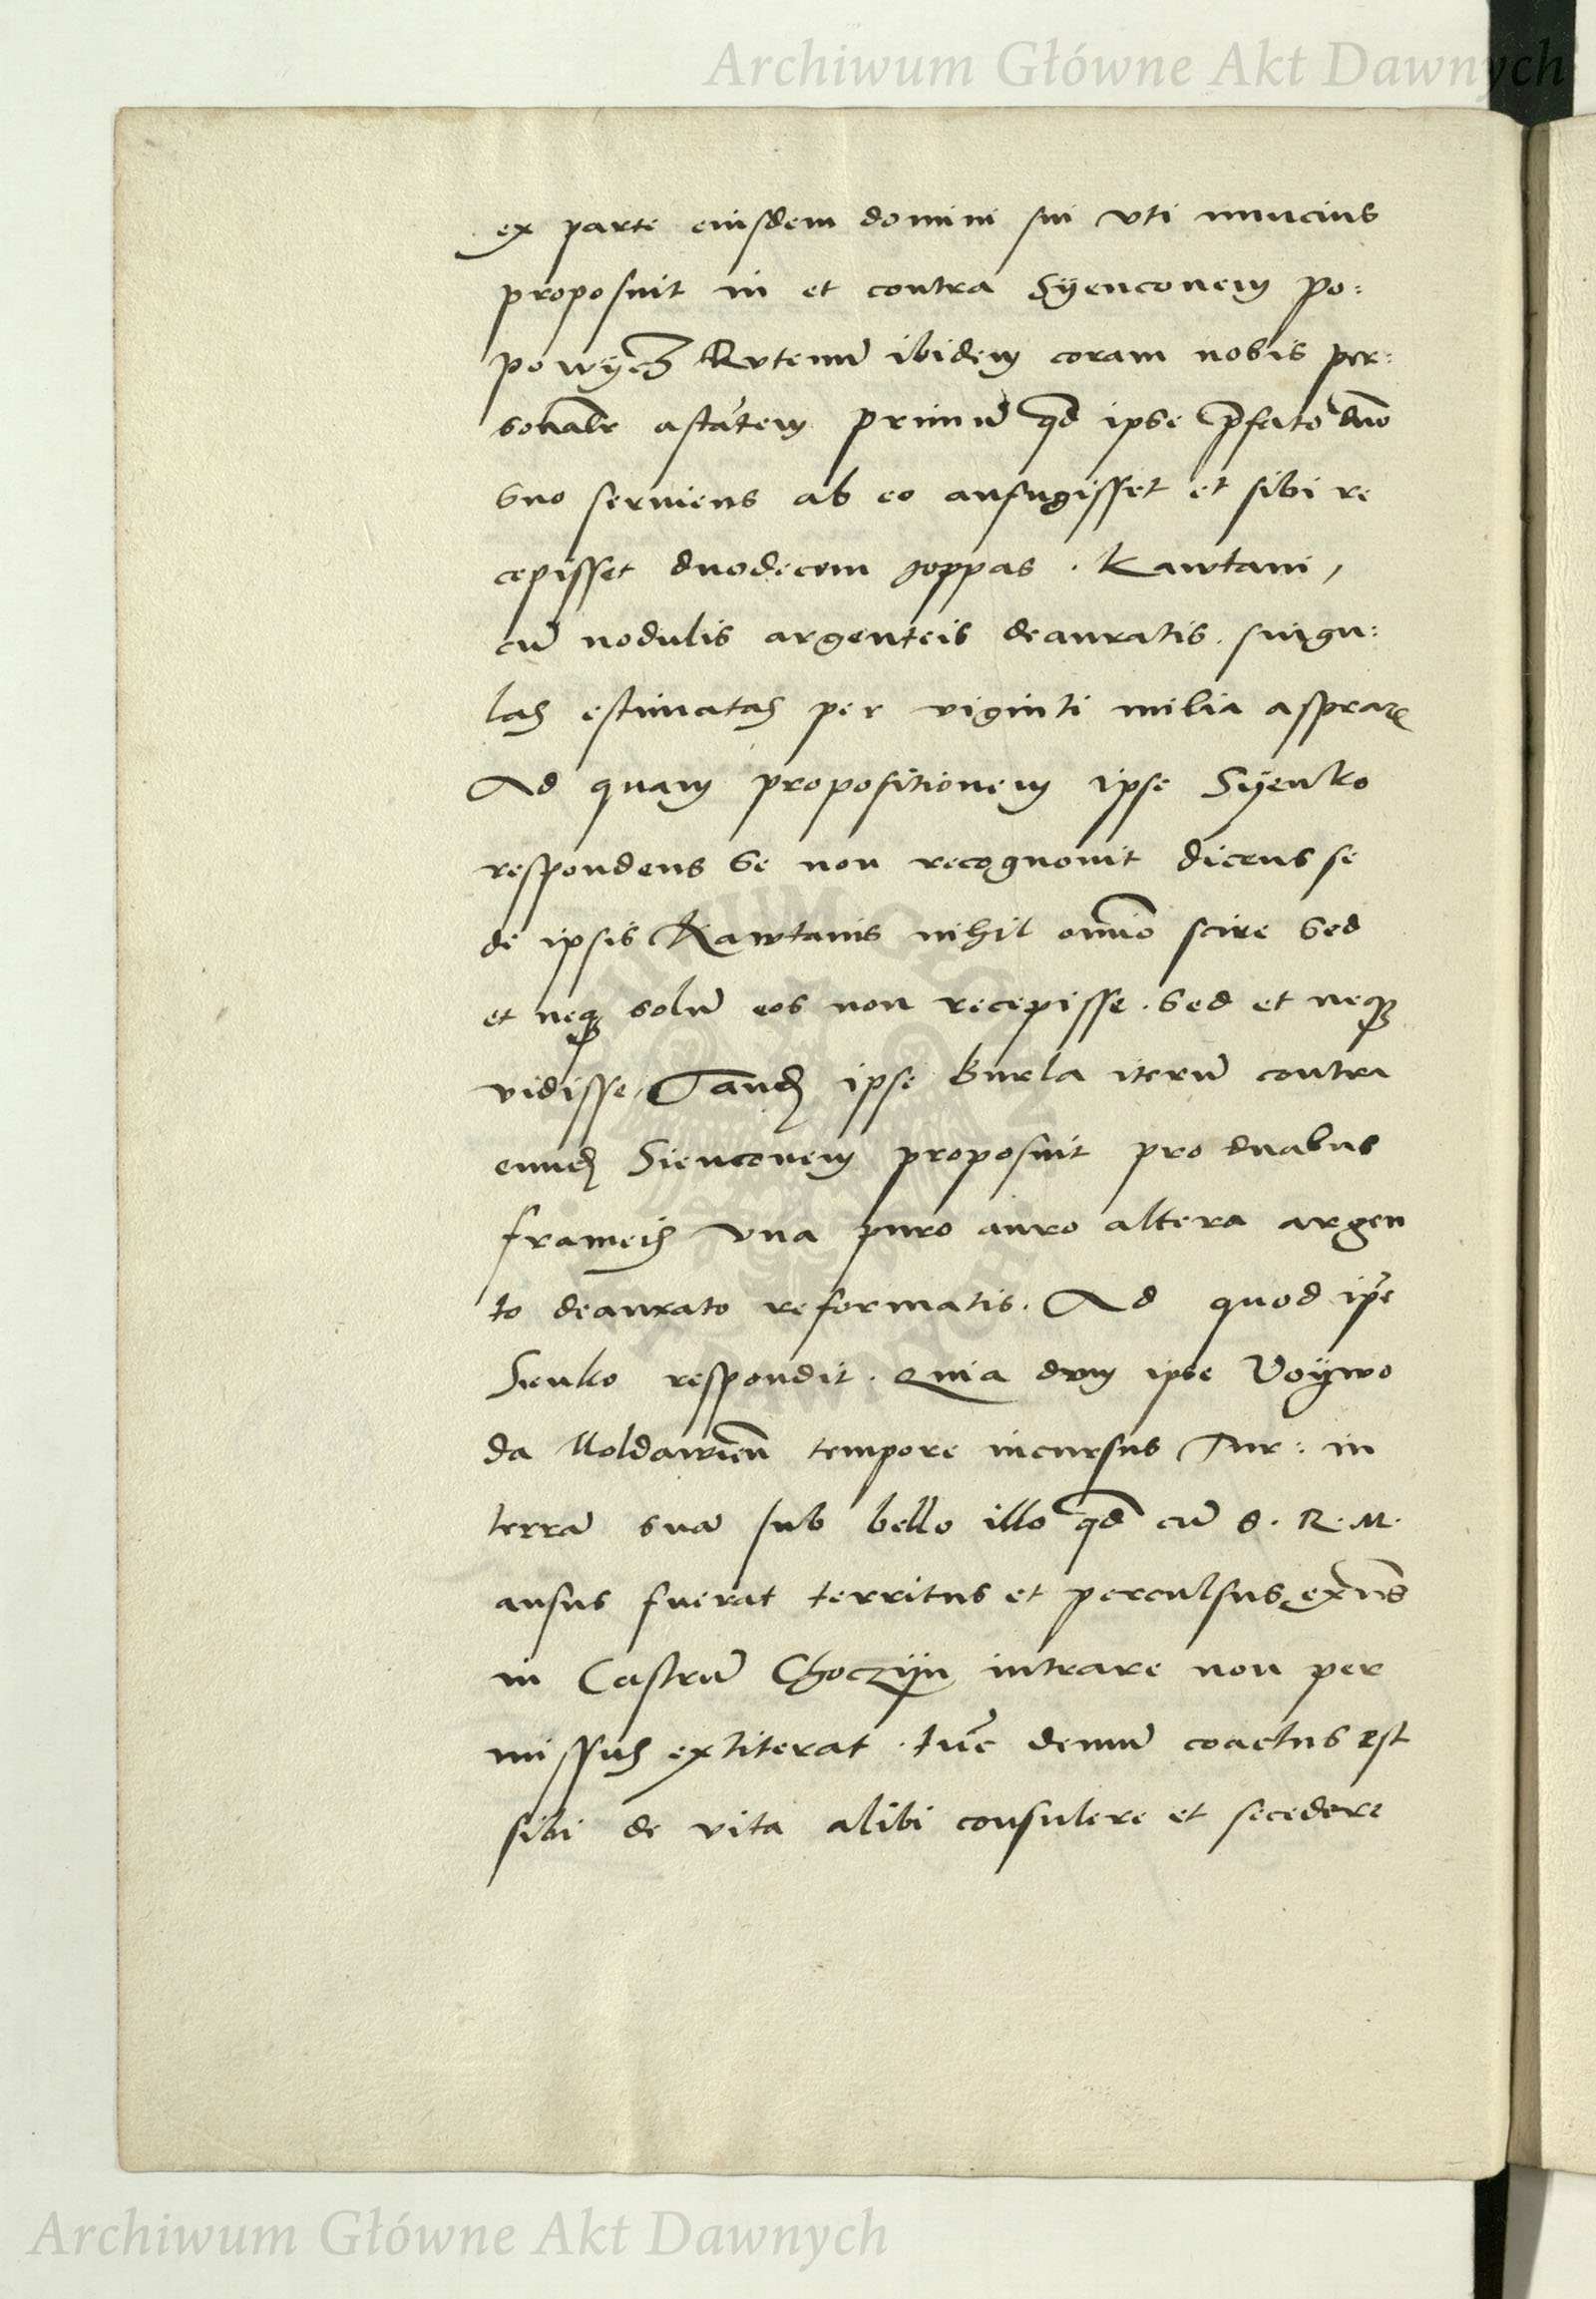 Archiwum Główne Akt Dawnych
ex parte eiusdem domini sui vti nuncius
proposuit in et contra Syenconem Po:
powycz Rutenū ibidem coram nobis per:
sonalr astātem primū qd ipse pfato dno
suo seruiens ab eo aufugisset et sibi re
cepisset duodecem joppas. Kawtani,
cū nodulis argenteis deauratis. singu:
las estimatas per viginti milia aspraꝝ
Ad quam propositionem ipse Syenko
respondens se non recognouit dicens se
de ipsis Kawtanis nihil omīo scire sed
et neqꝫ solū eos non recepisse. sed et neqꝫ
vidisse, Tandꝫ ipse Burla iterū contra
eundꝫ Sienconem proposuit pro duabus
frameis vna puro auro altera argen
to deaurato reformatis. Ad quod ipse
Sienko respondit. Quia dum ipse Voywo
da Moldawien̄ tempore incursus Tur: in
terrā suā sub bello illo qd cū S. R. M.
ausus fuerat territus et perculsus
in Castrū Choczyn intrare non per
missus extiterat. tūc demū coactus est
sibi de vita alibi consulere et secedere
ARCHIWUM GŁÓWNE AKT DAWNYCH
Archiwum Główne Akt Dawnych